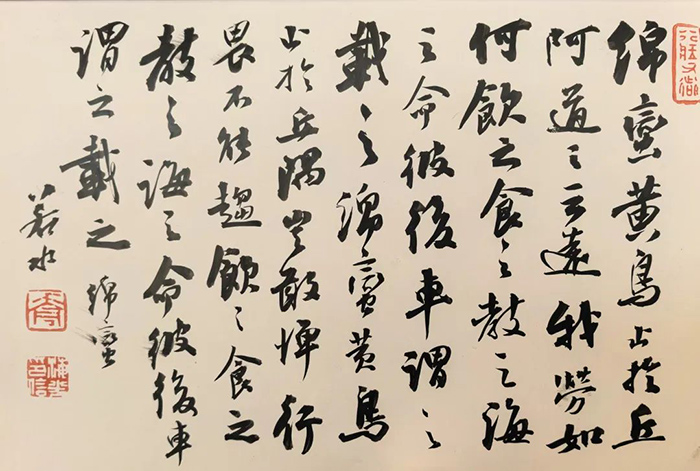 綿蠻黃鳥止於丘
阿道之云遠我勞如
何飲之食之教之誨
之命彼後車謂之
載之綿蠻黃鳥
止於丘隅豈敢憚行
畏不能趨飲之食之
教之誨之命彼後車
謂之載之 綿蠻
若水